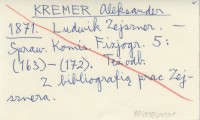 KREMER Aleksander
1871. Ludwik Zejszner. —
Spraw. Komis. Fizjogr. 5:
(163)—(172). Też odb.
Z bibliografią prac Zej-
sznera.